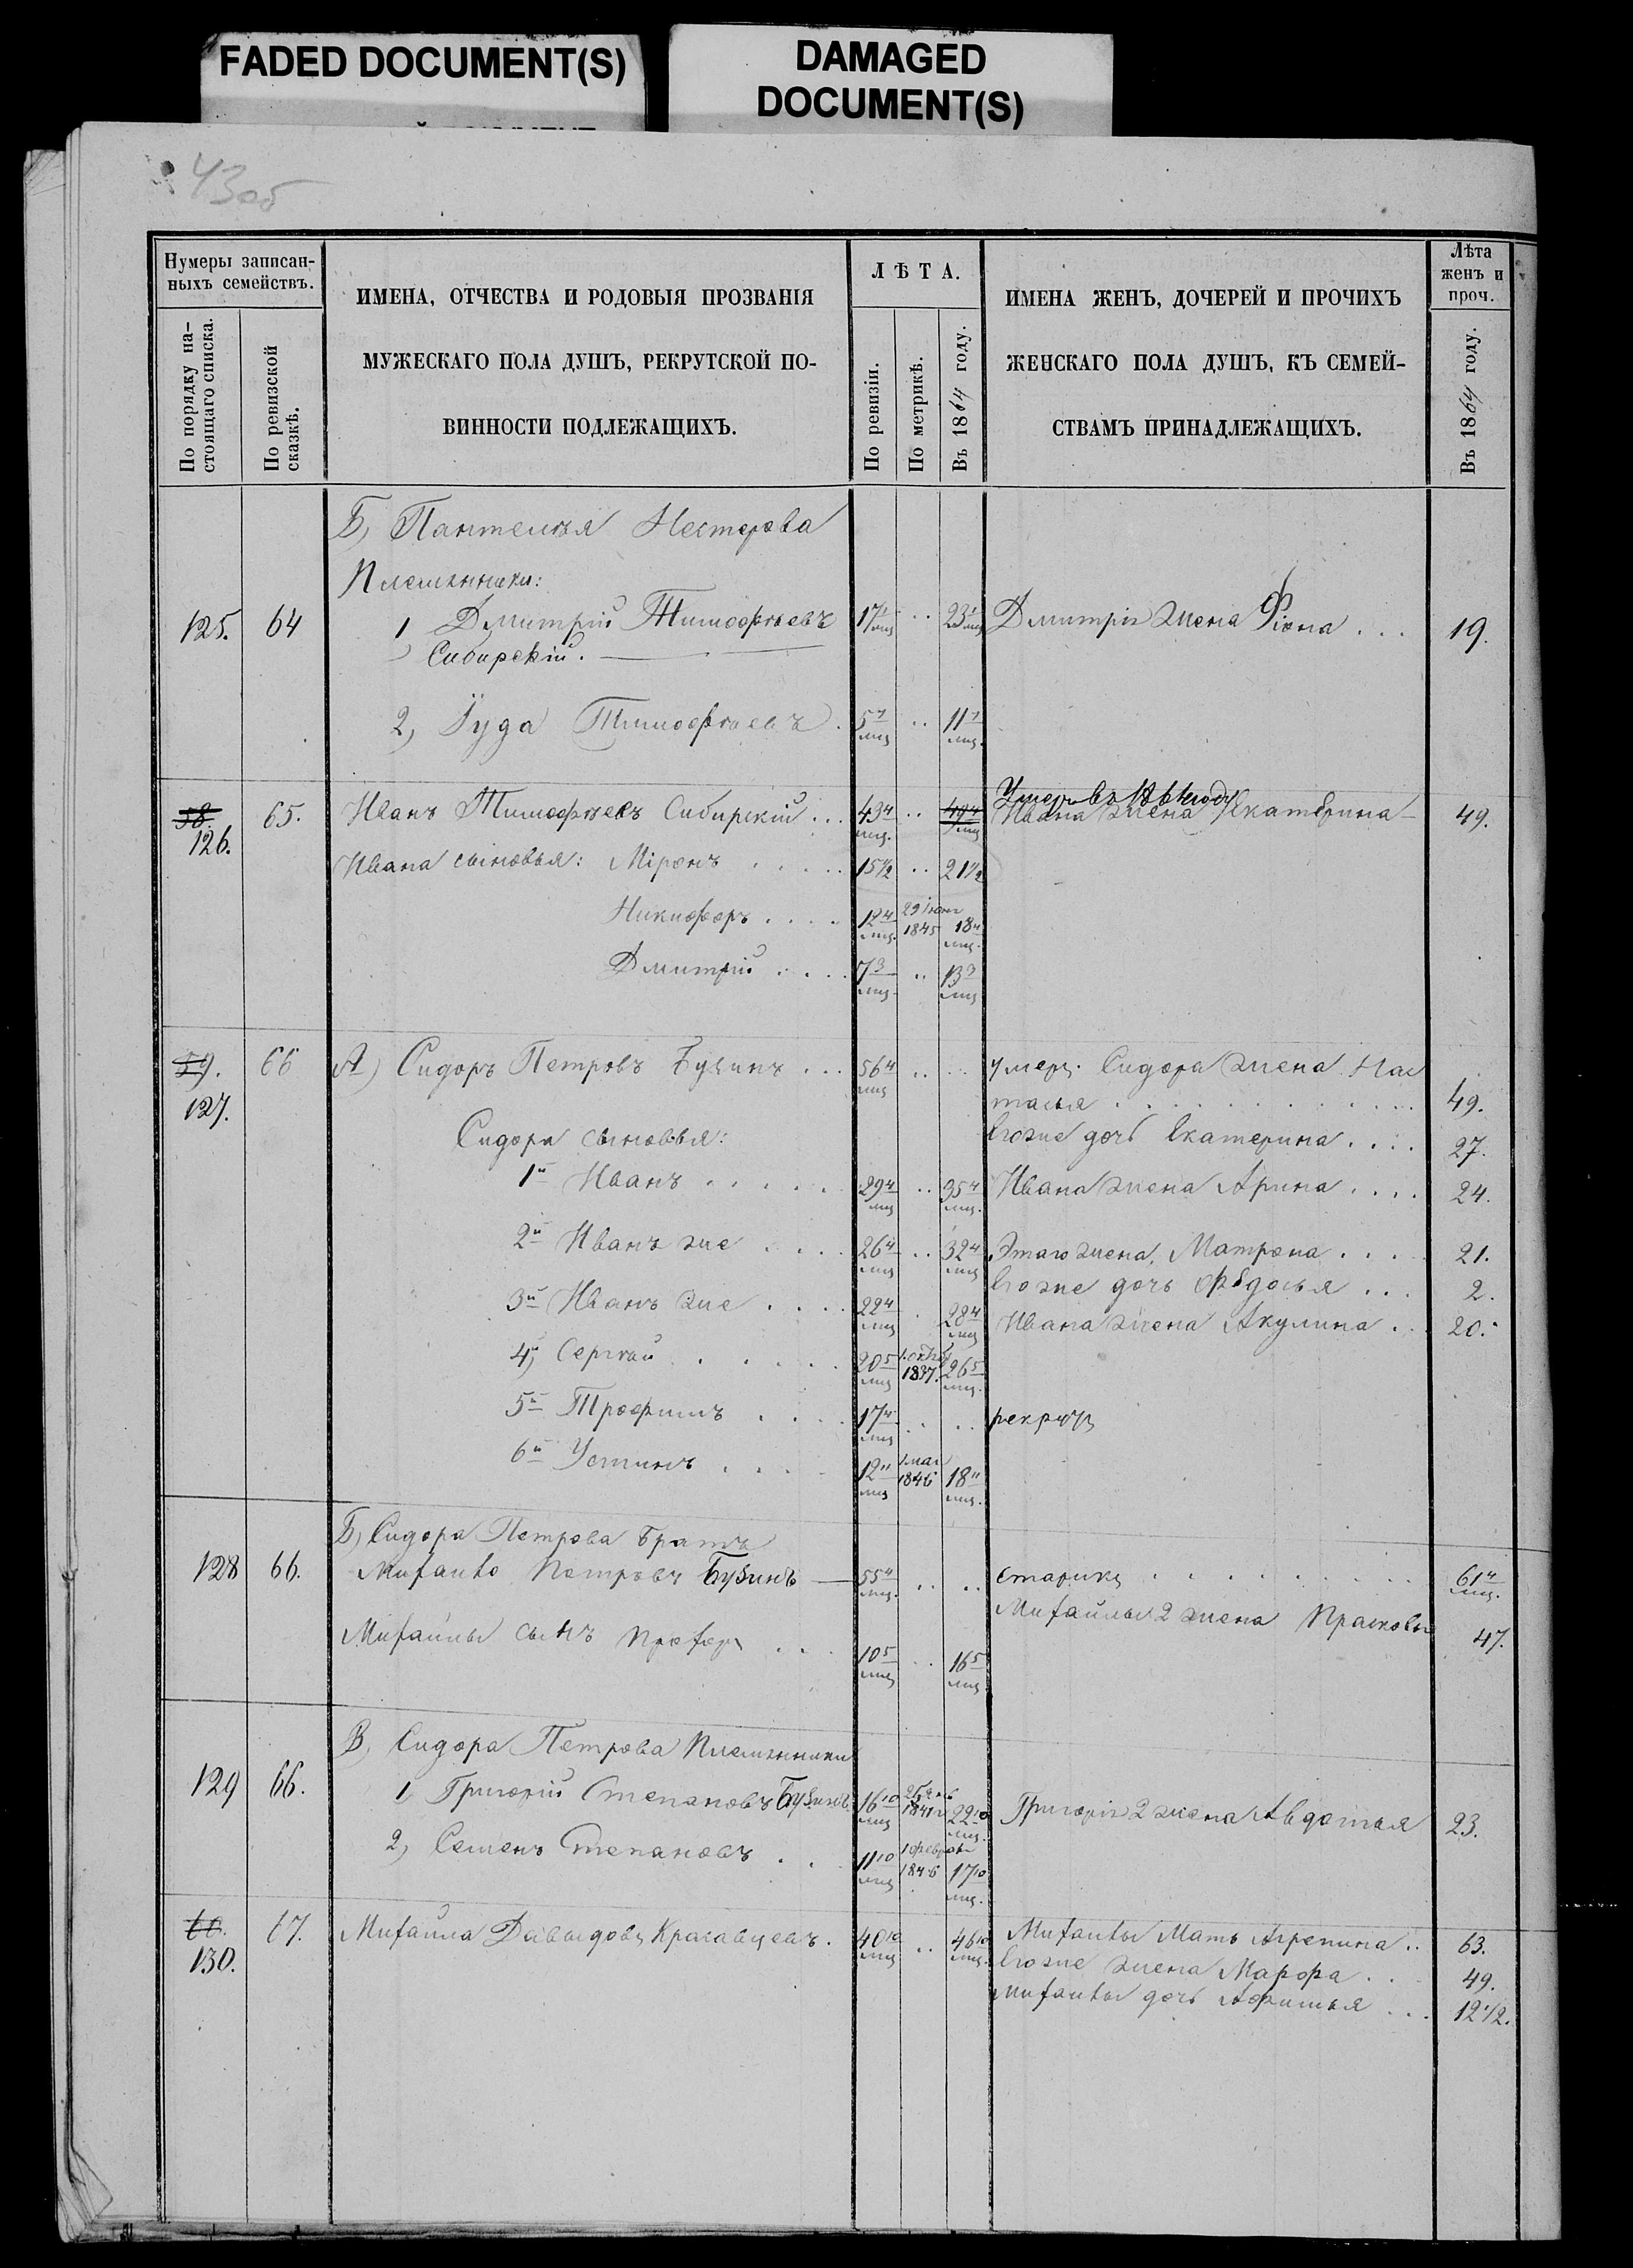 FADED DOCUMENT(S)
DAMAGED
DOCUMENT(S)
43об
Нумеры записан-
ныхъ семействъ.
По порядку на-
стоящаго списка.
По ревизской
сказкѣ.
ИМЕНА, ОТЧЕСТВА И РОДОВЫЯ ПРОЗВАНІЯ
МУЖЕСКАГО ПОЛА ДУШЪ, РЕКРУТСКОЙ ПО-
ВИННОСТИ ПОДЛЕЖАЩИХЪ.
ЛѢТА.
По ревизіи.
По метрикѣ.
Въ 1864 году.
ИМЕНА ЖЕНЪ, ДОЧЕРЕЙ И ПРОЧИХЪ
ЖЕНСКАГО ПОЛА ДУШЪ, КЪ СЕМЕЙ-
СТВАМЪ ПРИНАДЛЕЖАЩИХЪ.
Лѣта
женъ и
проч.
Въ 1864 году.
Б) Пантелѣя Нестерова
Племянники:
125. 64 1 Дмитрій Тимофѣевъ 17 1/мц .. 23 1/мц Дмитрія жена Фіона . . . 19.
Сибирскій.
2) Іуда Тимофѣевъ . 5 7/мц .. 11 7/мц.
Умеръ въ году
58. 65. Иванъ Тимофѣевъ Сибирскій ... 43 4/мц. .. 49 4/мц Ивана жена Екатерина 49.
126.
Ивана сыновья: Міронъ . . . . . 15 1/2 .. 21 1/2
Никифоръ . . . . 12 4/мц. 29 Іюня 1845 18 4/мц.
Дмитрій . . . . 7 3/мц. .. 13 3/мц
59. 66 А) Сидоръ Петровъ Бузинъ ... 56 4/мц .. .. умеръ. Сидора жена Нас
127. тасья . . . . . . . . 49.
Сидора сыновья: Егоже дочь Екатерина . . . . 27.
1й Иванъ . . . . . 29 4/мц .. 35 4/мц. Ивана жена Арина . . . . 24.
2й Иванъ же . . . . 26 4/мц .. 32 4/мц Этаго жена, Матрена . . . . 21.
Егоже дочь Федосья . . . 2.
3й Иванъ же . . . . 22 4/мц . 28 4/мц Ивана жена Акулина . . 20.
4й Сергѣй . . . . . 20 5/мц 1837. 26 5/мц.
5й Трофимъ . . . . 17 4/мц .. .. рекрутъ
6й Устинъ . . . . 12 11/мц 1 мая 1846 18 11/мц.
Б) Сидора Петрова братъ
128 66. Михайло Петровъ Бузинъ — 55 4/мц. .. .. старикъ . . . . . . . . 61 4/мц.
Михайлы 2 жена Прасковья 47.
Михайлы сынъ Прохоръ . . . 10 5/мц .. 16 5/мц
В) Сидора Петрова Племянники
129 66. 1) Григорій Степановъ Бузинъ 16 10/мц 1841 22 10/мц. Григорія 2 жена Авдотья 23.
2) Семенъ Степановъ . . 11 10/мц 1 февраля 1846 17 10/мц.
60. 67. Михайла Давыдовъ Красавцевъ . 40 10/мц .. 46 10/мц. Михайлы Мать Агрепина .. 63.
130. Егоже жена Марфа . . . 49.
Михайлы дочь Афимья . . . 12 1/2.